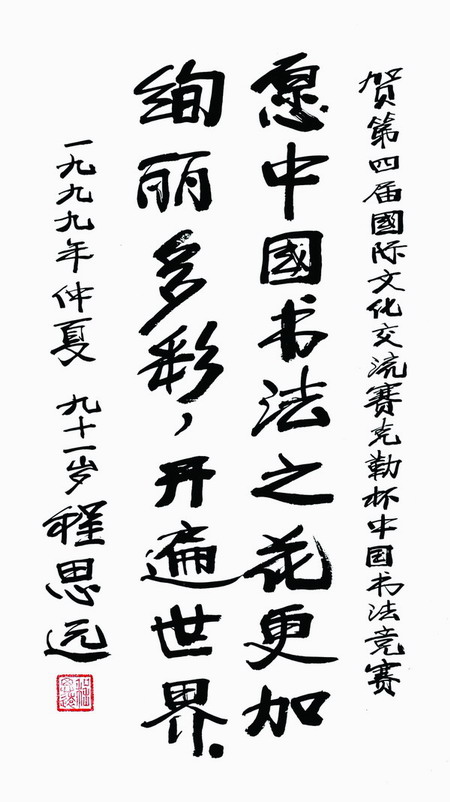 贺第四届國际文化交流赛克勒杯中国书法竞赛
愿中國书法之花更加
绚丽多彩，开遍世界.
一九九九年仲夏 九十一岁 程思远